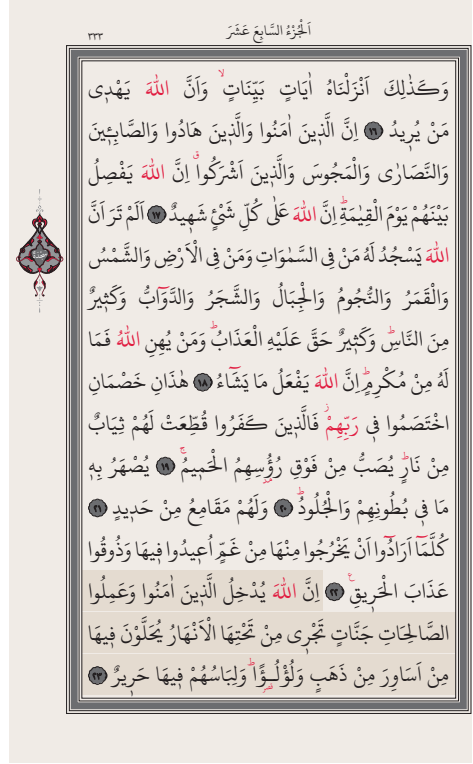 ٣٣٣
اَلْجُزْءُ السَّابِعَ عَشَرَ
وَكَذٰلِكَ اَنْزَلْنَاهُ اٰيَاتٍ بَيِّنَاتٍۙ وَاَنَّ اللّٰهَ يَهْد۪ى
مَنْ يُر۪يدُ ﴿١٦﴾ اِنَّ الَّذ۪ينَ اٰمَنُوا وَالَّذ۪ينَ هَادُوا وَالصَّابِـ۪ٔينَ
وَالنَّصَارٰى وَالْمَجُوسَ وَالَّذ۪ينَ اَشْرَكُواۗ اِنَّ اللّٰهَ يَفْصِلُ
بَيْنَهُمْ يَوْمَ الْقِيٰمَةِۜ اِنَّ اللّٰهَ عَلٰى كُلِّ شَيْءٍ شَه۪يدٌ ﴿١٧﴾ اَلَمْ تَرَ اَنَّ
اللّٰهَ يَسْجُدُ لَهُ مَنْ فِى السَّمٰوَاتِ وَمَنْ فِى الْاَرْضِ وَالشَّمْسُ
وَالْقَمَرُ وَالنُّجُومُ وَالْجِبَالُ وَالشَّجَرُ وَالدَّوَٓابُّ وَكَث۪يرٌ
مِنَ النَّاسِۜ وَكَث۪يرٌ حَقَّ عَلَيْهِ الْعَذَابُۜ وَمَنْ يُهِنِ اللّٰهُ فَمَا
لَهُ مِنْ مُكْرِمٍۜ اِنَّ اللّٰهَ يَفْعَلُ مَا يَشَٓاءُ ﴿١٨﴾ هٰذَانِ خَصْمَانِ
اخْتَصَمُوا ف۪ى رَبِّهِمْۘ فَالَّذ۪ينَ كَفَرُوا قُطِّعَتْ لَهُمْ ثِيَابٌ
مِنْ نَارٍۜ يُصَبُّ مِنْ فَوْقِ رُؤُ۫سِهِمُ الْحَم۪يمُۚ ﴿١٩﴾ يُصْهَرُ بِه۪
مَا ف۪ى بُطُونِهِمْ وَالْجُلُودُۜ ﴿٢٠﴾ وَلَهُمْ مَقَامِعُ مِنْ حَد۪يدٍ ﴿٢١﴾
كُلَّمَٓا اَرَادُٓوا اَنْ يَخْرُجُوا مِنْهَا مِنْ غَمٍّ اُع۪يدُوا ف۪يهَا وَذُوقُوا
عَذَابَ الْحَر۪يقِ۟ ﴿٢٢﴾ اِنَّ اللّٰهَ يُدْخِلُ الَّذ۪ينَ اٰمَنُوا وَعَمِلُوا
الصَّالِحَاتِ جَنَّاتٍ تَجْر۪ى مِنْ تَحْتِهَا الْاَنْهَارُ يُحَلَّوْنَ ف۪يهَا
مِنْ اَسَاوِرَ مِنْ ذَهَبٍ وَلُؤْلُـؤًاۜ وَلِبَاسُهُمْ ف۪يهَا حَر۪يرٌ ﴿٢٣﴾